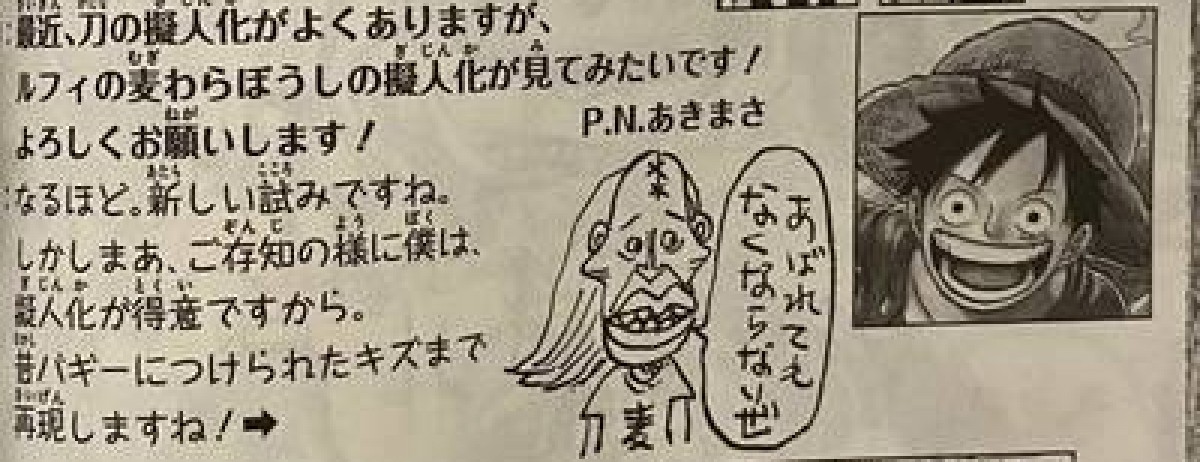 最近、刀の擬人化がよくありますが、
ルフィの麦わらぼうしの擬人化が見てみたいです！
よろしくお願いします！
P.N.あきまさ
なるほど。新しい試みですね。
しかしまあ、ご存知の様に僕は、
擬人化が得意ですから。
昔バギーにつけられたキズまで
再現しますね！➡
あばれてえ
なくなくならないぜ
麦